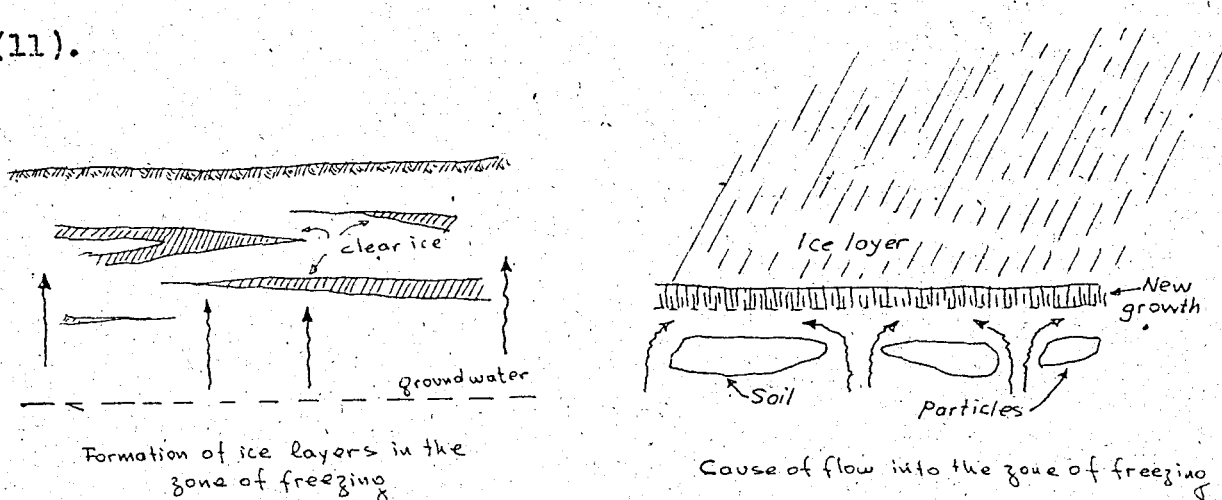 (11).
clear ice
groundwater
Formation of ice layers in the
zone of freezing
Ice layer
New
growth
Soil
Particles
Cause of flow into the zone of freezing